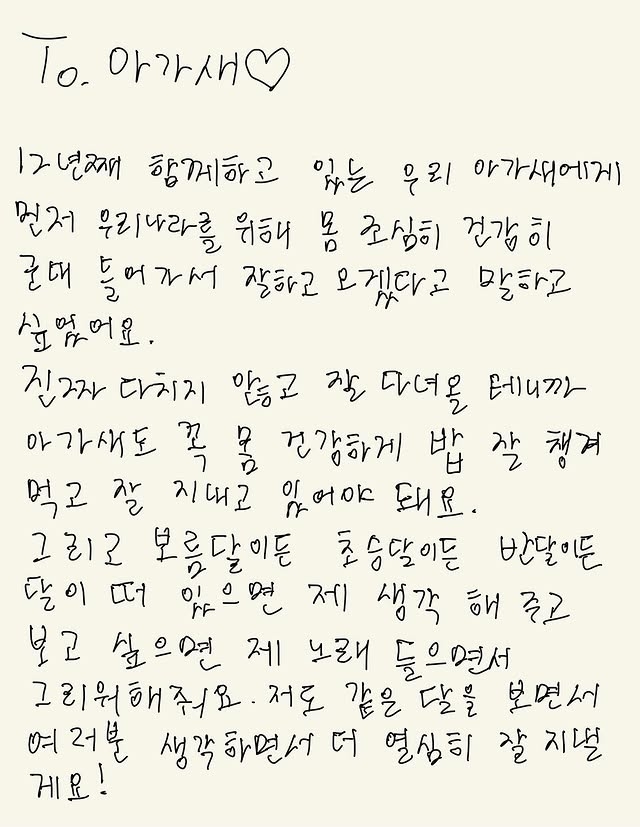 To. 아가새♡
12년째 함께하고 있는 우리 아가새에게
먼저 우리나라를 위해 몸 조심히 건강히
군대 들어가서 잘하고 오겠다고 말하고
싶었어요.
진짜 다치지 않고 잘 다녀올 테니까
아가새도 꼭 몸 건강하게 밥 잘 챙겨
먹고 잘 지내고 있어야 돼요.
그리고 보름달이든 초승달이든 반달이든
달이 떠 있으면 제 생각 해 주고
보고 싶으면 제 노래 들으면서
그리워해줘요. 저도 같은 달을 보면서
여러분 생각하면서 더 열심히 잘 지낼
게요!